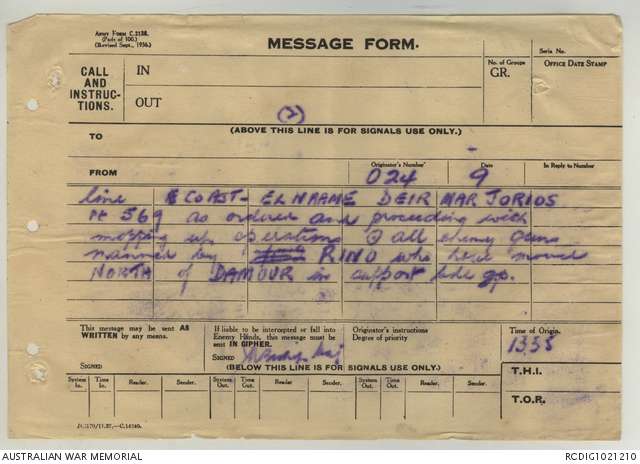 Army Form C.2128.
(Pads of 100.)
(Revised Sept., 1936.)
MESSAGE FORM.
Serial No.
CALL
AND
INSTRUC-
TIONS.
IN
OUT
No. of Groups
GR.
OFFICE DATE STAMP
(2)
(ABOVE THIS LINE IS FOR SIGNALS USE ONLY.)
TO
FROM
Originator's Number
024
Date
9
In Reply to Number
line COAST - EL NAAME DEIR MAR JORIOS
Pt 569 as ordered and proceeding with
mopping up operations all enemy guns
manned by RINO who have moved
NORTH of DAMOUR in support bde gp.
This message may be sent AS
WRITTEN by any means.
SIGNED
If liable to be intercepted or fall into
Enemy Hands, this message must be
sent IN CIPHER.
SIGNED Maj
Originator's instructions
Degree of priority
Time of Origin.
1355
(BELOW THIS LINE IS FOR SIGNALS USE ONLY.)
T.H.I.
T.O.R.
System In. Time In. Reader. Sender. System Out. Time Out. Reader. Sender. System Out. Time Out. Reader. Sender.
AUSTRALIAN WAR MEMORIAL
RCDIG1021210